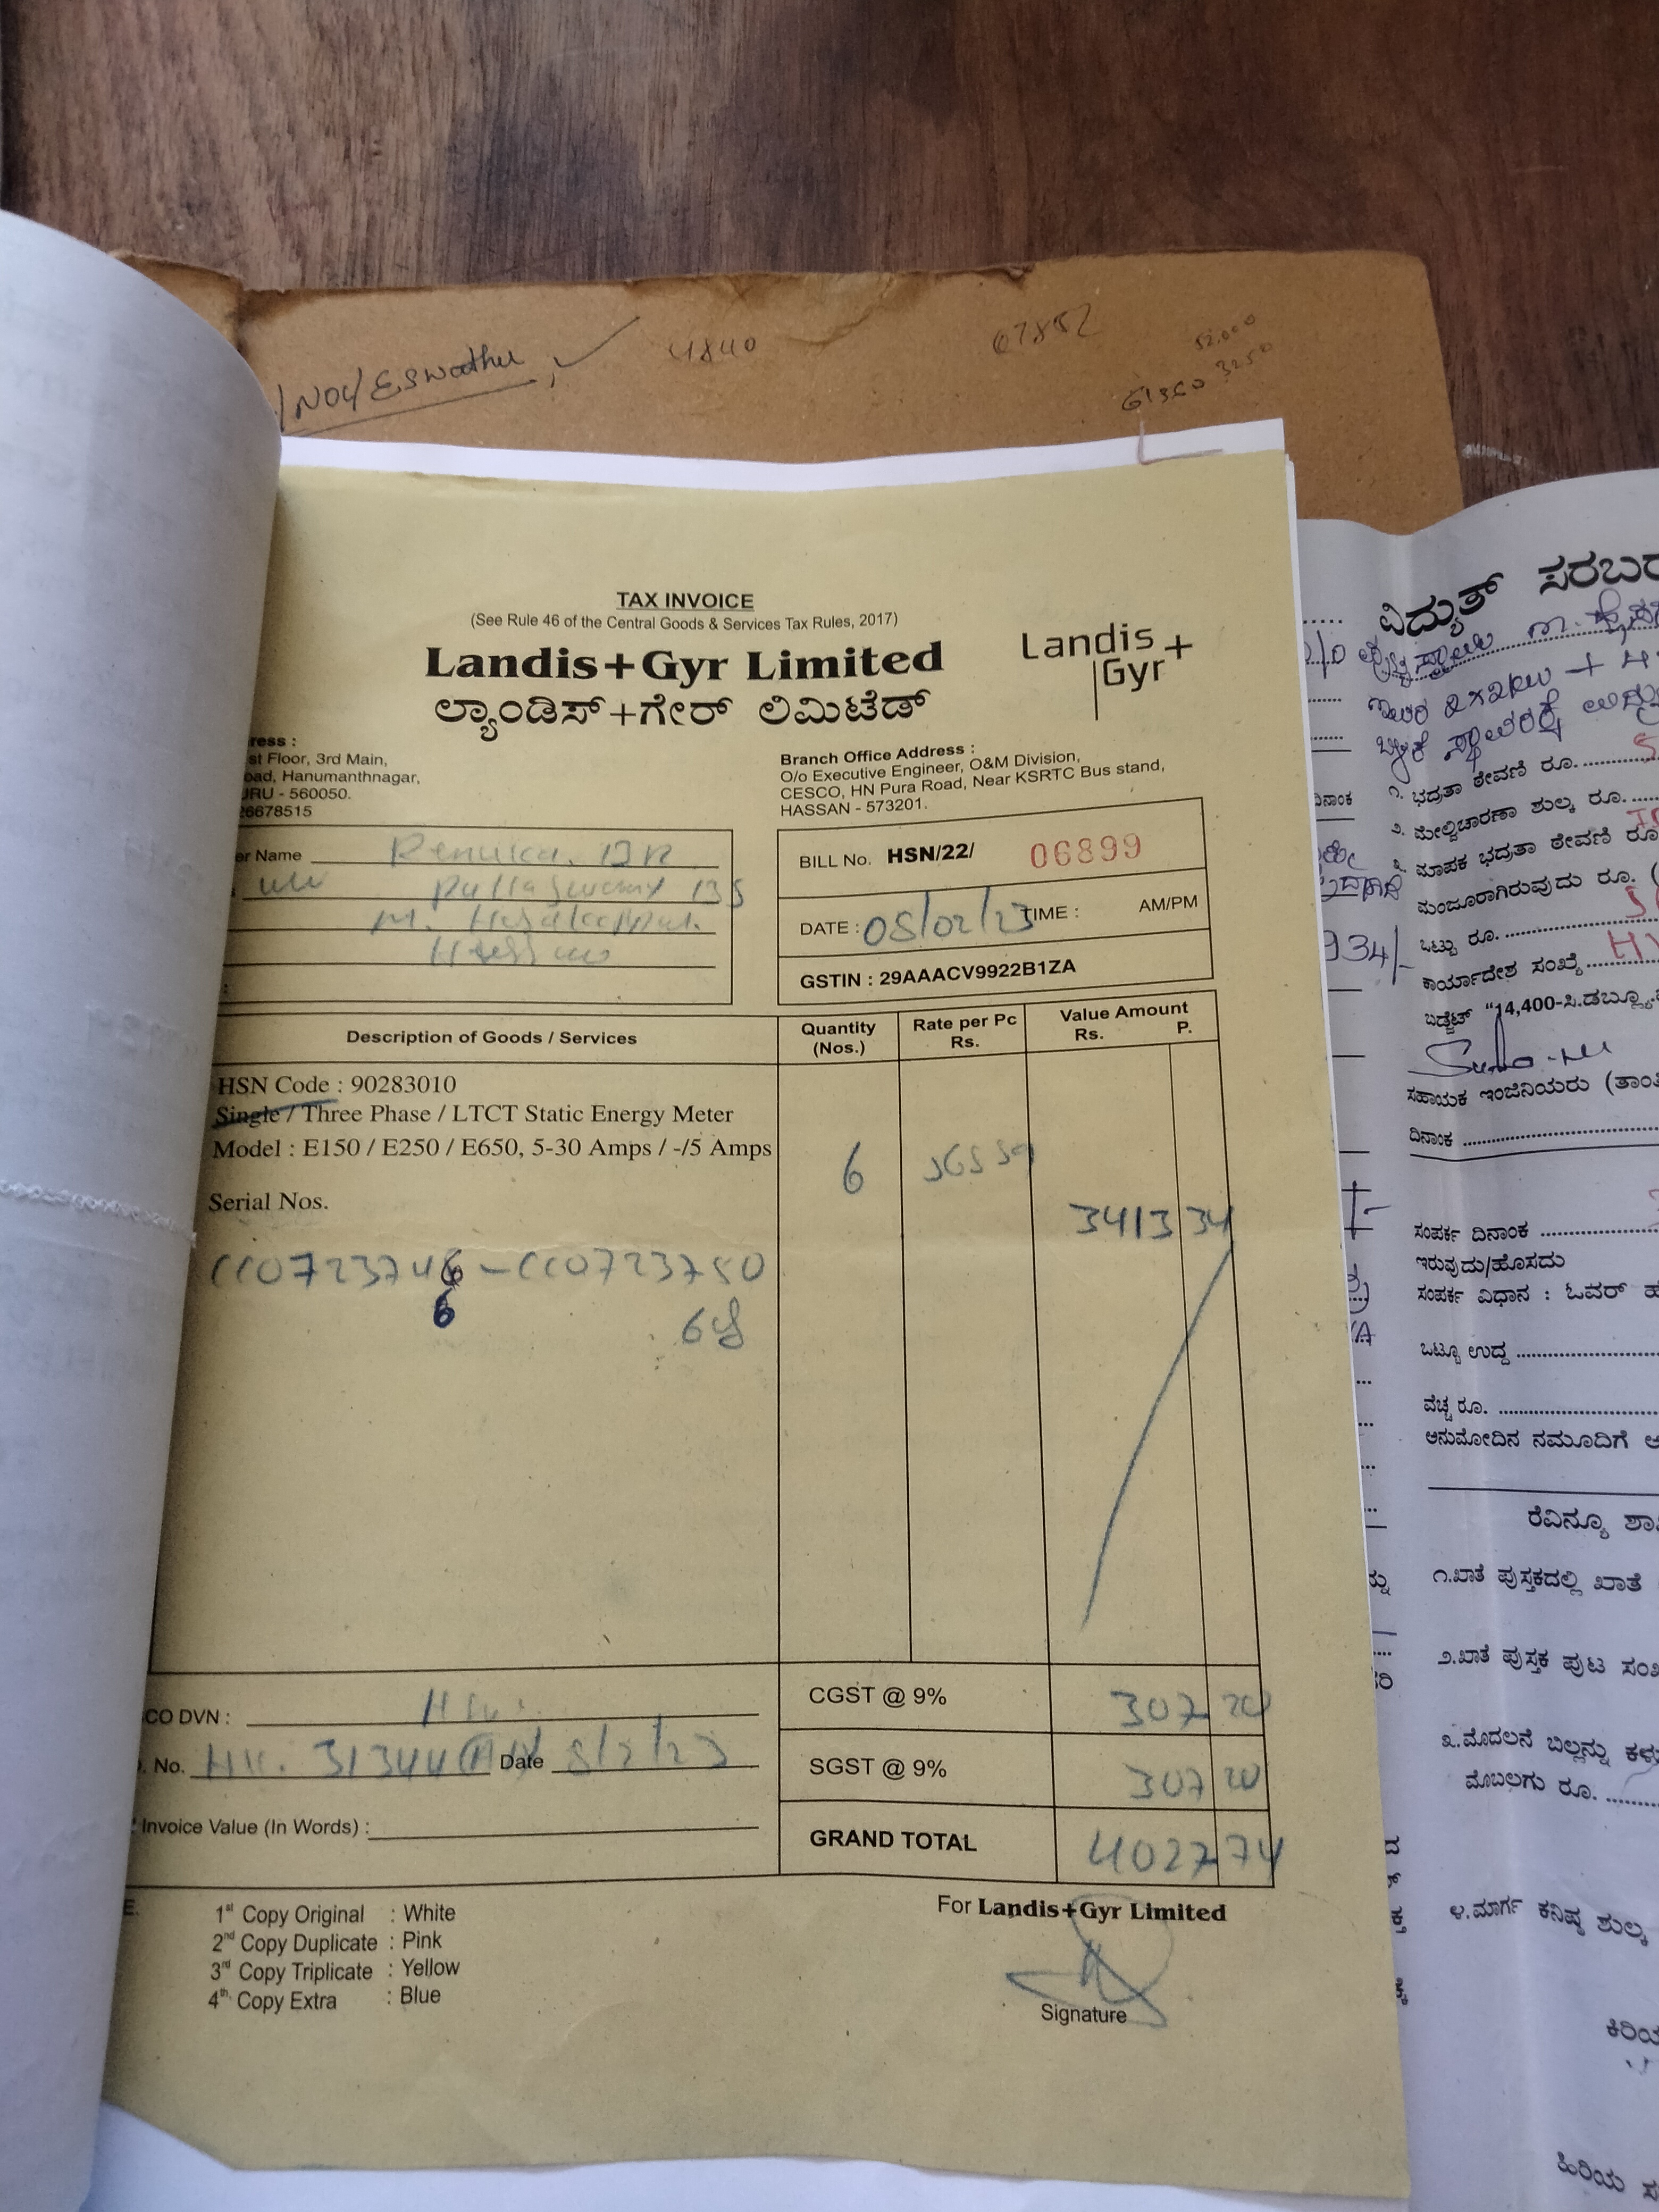 /NOY/Eswathu
4840
07852
52,000
3250
TAX INVOICE
(See Rule 46 of the Central Goods & Services Tax Rules, 2017)
Landis+Gyr Limited
ಲ್ಯಾಂಡಿಸ್+ಗೇರ್ ಲಿಮಿಟೆಡ್
Landis
Gyr+
ress :
st Floor, 3rd Main,
oad, Hanumanthnagar,
URU - 560050.
26678515
Branch Office Address :
O/o Executive Engineer, O&M Division,
CESCO, HN Pura Road, Near KSRTC Bus stand,
HASSAN - 573201.
er Name Renuka.
BILL No. HSN/22/ 06899
DATE : 08/02/23 TIME : AM/PM
GSTIN : 29AAACV9922B1ZA
Description of Goods / Services
Quantity (Nos.)
Rate per Pc Rs.
Value Amount
Rs. P.
HSN Code : 90283010
Single / Three Phase / LTCT Static Energy Meter
Model : E150 / E250 / E650, 5-30 Amps / -/5 Amps
6
Serial Nos.
3413 34
CC0723746 - CC0723750
6
CO DVN :
. No. 31344 Date 8/2/23
Invoice Value (In Words) :
CGST @ 9% 307 20
SGST @ 9% 307 20
GRAND TOTAL 4027 74
1st Copy Original : White
2nd Copy Duplicate : Pink
3rd Copy Triplicate : Yellow
4th Copy Extra : Blue
For Landis+Gyr Limited
Signature
ವಿದ್ಯುತ್ ಸರಬರ
೧. ಭದ್ರತಾ ಠೇವಣಿ ರೂ.
೨. ಮೇಲ್ವಿಚಾರಣಾ ಶುಲ್ಕ ರೂ.
೩. ಮಾಪಕ ಭದ್ರತಾ ಠೇವಣಿ ರೂ
ಮಂಜೂರಾಗಿರುವುದು ರೂ. (
ಒಟ್ಟು ರೂ.
ಕಾರ್ಯಾದೇಶ ಸಂಖ್ಯೆ
ಬಡ್ಜೆಟ್ "14,400-ಸಿ.ಡಬ್ಲ್ಯೂ.
ಸಹಾಯಕ ಇಂಜಿನಿಯರು (ತಾಂತ್ರಿ
ದಿನಾಂಕ
934/-
ದಿನಾಂಕ
ಸಂಪರ್ಕ ದಿನಾಂಕ
ಇರುವುದು/ಹೊಸದು
ಸಂಪರ್ಕ ವಿಧಾನ : ಓವರ್ ಹ
ಒಟ್ಟೂ ಉದ್ದ
ವೆಚ್ಚ ರೂ.
ಅನುಮೋದಿನ ನಮೂದಿಗೆ ಅ
ರೆವಿನ್ಯೂ ಶಾ
೧.ಖಾತೆ ಪುಸ್ತಕದಲ್ಲಿ ಖಾತೆ
೨.ಖಾತೆ ಪುಸ್ತಕ ಪುಟ ಸಂಖ
೩.ಮೊದಲನೆ ಬಿಲ್ಲನ್ನು ಕಳು
ಮೊಬಲಗು ರೂ.
೪.ಮಾರ್ಗ ಕನಿಷ್ಠ ಶುಲ್ಕ
ಕಿರಿಯ
ಹಿರಿಯ ಸ